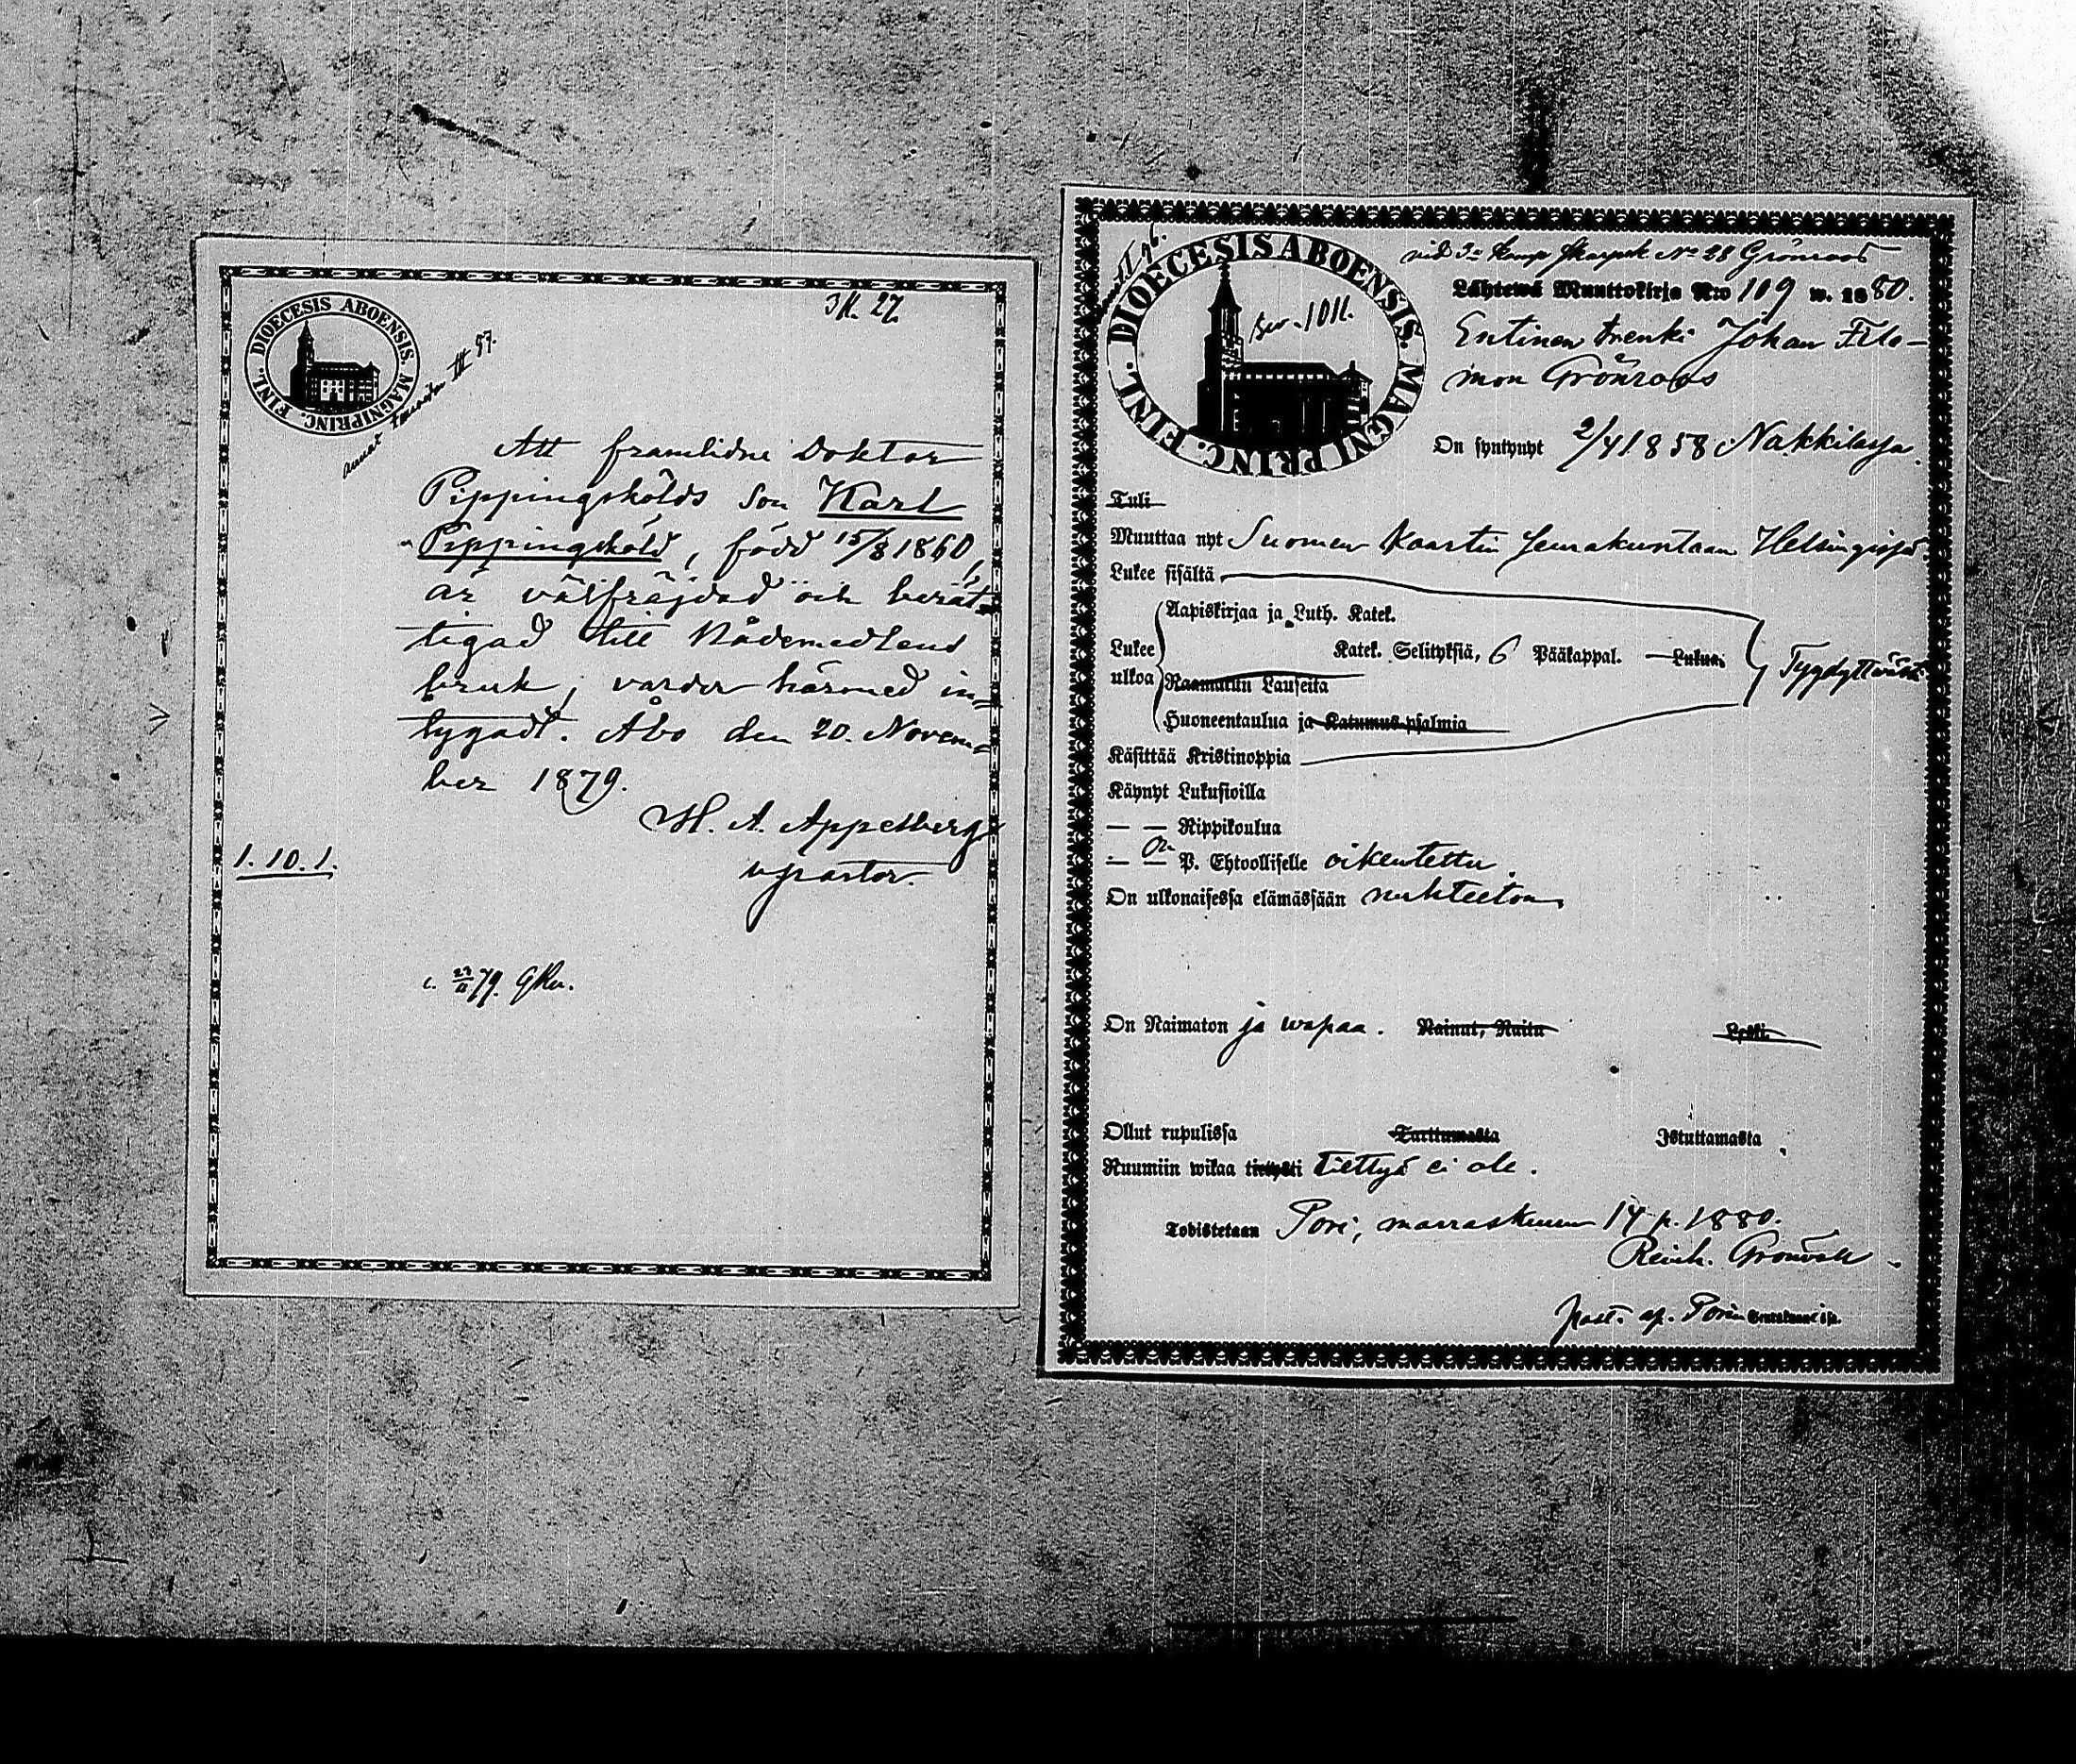 DIOECESIS ABOENSIS MAGNI PRINC. FINL.
3K. 27.
III 57.
Att framlidne Doktor
Pippingskölds son Karl
Pippingsköld, född 15/8 1860,
är välfräjdad och berät-
tigad till Nådemedlens
bruk, varder härmed in-
tygadt. Åbo den 20. Novem-
ber 1879.
H. A. Appelberg
v pastor.
1. 10. 1.
79.
DIOECESIS ABOENSIS. MAGNI PRINC. FINL.
No 28 Grönroos
Lähtewä Muuttokirja N:o 109 w. 1880.
Entinen trenki Johan Filo-
mon Grönroos
On syntynyt 2/4 1858 Nakkilassa
Tuli
Muuttaa nyt Suomen Kaartin seurakuntaan Helsingissä
Lukee sisältä
Aapiskirjaa ja Luth. Katek.
Lukee ulkoa
Katek. Selityksiä, 6 Pääkappal. Lukua.
Tyydyttäväst
Raamatun Lauseita
Huoneentaulua ja Katumus-psalmia
Käsittää Kristinoppia
Käynyt Lukusioilla
— — Rippikoulua
— On — P. Ehtoolliselle oikeutettu
On ulkonaisessa elämässään nuhteeton
On Naimaton ja wapaa. Nainut, Naitu Leski.
Ollut rupulissa Tarttumasta Istuttamasta
Ruumiin wikaa tiettyä ei ole.
Todistetaan Pori, marraskuun 14 p. 1880.
Reinh. Grönvall
past. ap. Porin Seurakunnassa.